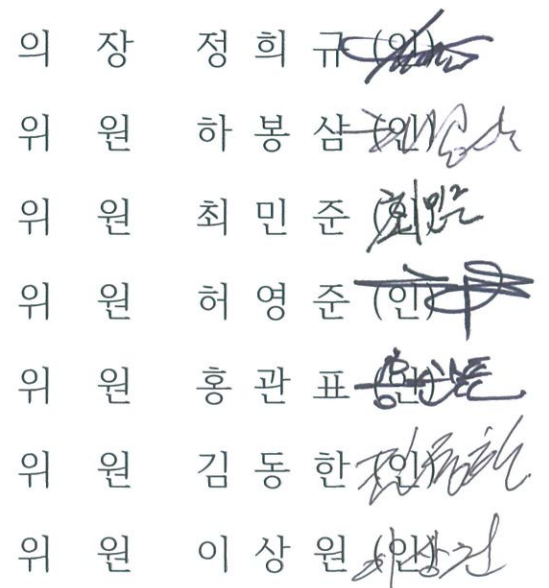 의 장 정 희 규 (인)
위 원 하 봉 삼 (인)
위 원 최 민 준 (인) 최민준
위 원 허 영 준 (인)
위 원 홍 관 표 (인)
위 원 김 동 한 (인) 김동한
위 원 이 상 원 (인) 이상원